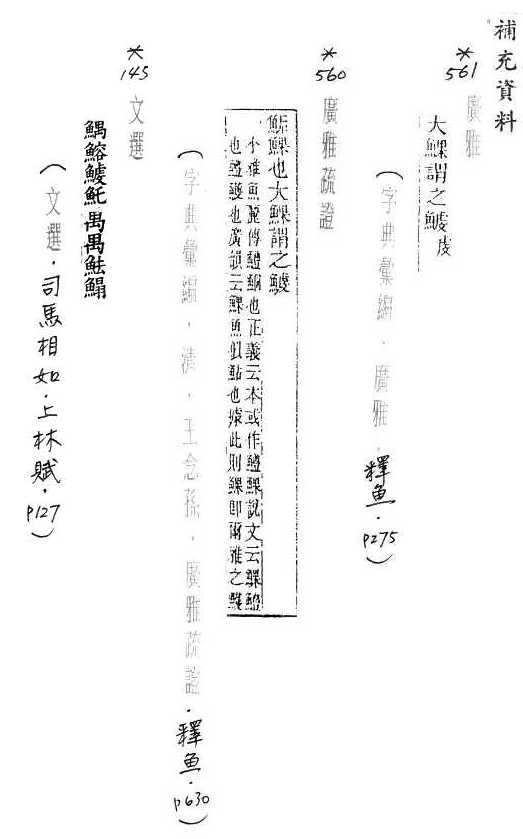 補充資料
*561 廣雅
大鰥謂之鯪皮
(字典彙編．廣雅．釋魚．p275)
*560 廣雅疏證
也大鰥謂之
小雅魚麗傳鱧鮦也正義云本或作鱧鰥說文云鰥鮦
也鱧也廣韻云鰥魚似鮎也據此則鰥即爾雅之
(字典彙編．清．王念孫．廣雅疏證．釋魚．p630)
*145 文選
鰅鰫鯪魠禺禺魼鰨
(文選．司馬相如．上林賦．p127)